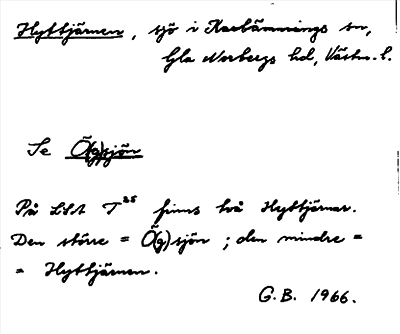 Hyttjärnen, sjö i Karbennings sn,
Gla Norbergs hd, Västm. l.
Se Ö(g)sjön
På LSA T 25 finns två Hyttjärnar.
Den större = Ö(g)sjön ; den mindre =
= Hyttjärnen.
G.B. 1966.